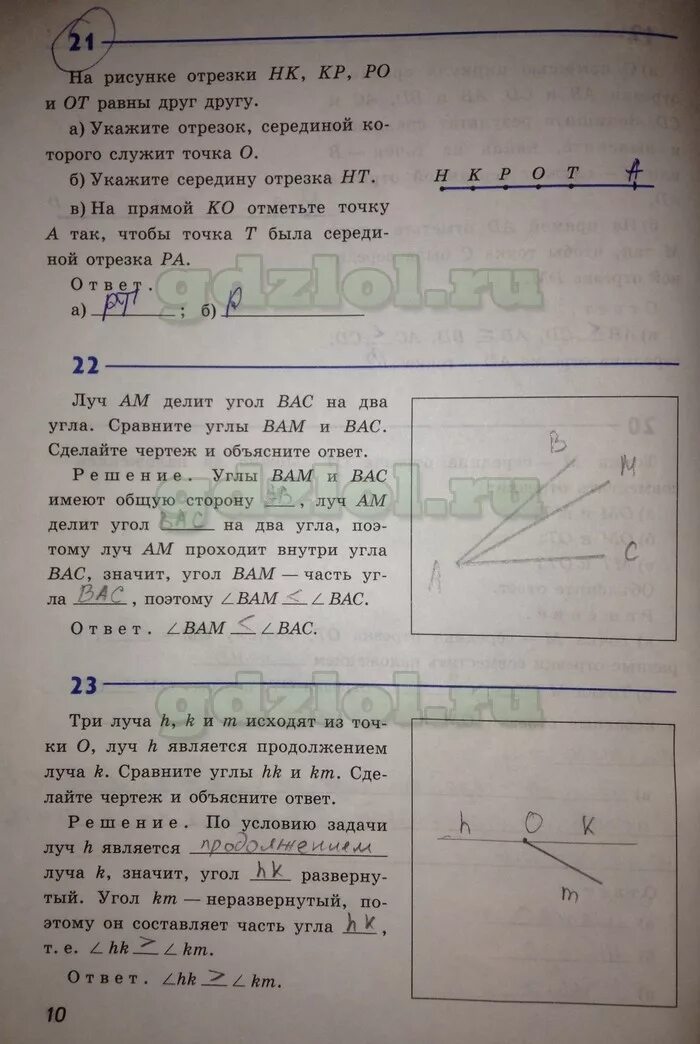 21
На рисунке отрезки HK, KP, PO
и OT равны друг другу.
а) Укажите отрезок, серединой ко-
торого служит точка O.
б) Укажите середину отрезка HT.
в) На прямой KO отметьте точку
A так, чтобы точка T была середи-
ной отрезка PA.
Ответ.
а) PT ; б) P
H K P O T A
gdzlol.ru
22
Луч AM делит угол BAC на два
угла. Сравните углы BAM и BAC.
Сделайте чертеж и объясните ответ.
Решение. Углы BAM и BAC
имеют общую сторону AB, луч AM
делит угол BAC на два угла, поэ-
тому луч AM проходит внутри угла
BAC, значит, угол BAM — часть уг-
ла BAC, поэтому ∠BAM < ∠BAC.
Ответ. ∠BAM < ∠BAC.
B
M
A
C
gdzlol.ru
23
gdzlol.ru
Три луча h, k и m исходят из точ-
ки O, луч h является продолжением
луча k. Сравните углы hk и km. Сде-
лайте чертеж и объясните ответ.
Решение. По условию задачи
луч h является продолжением
луча k, значит, угол hk разверну-
тый. Угол km — неразвернутый, по-
этому он составляет часть угла hk,
т. е. ∠hk > ∠km.
Ответ. ∠hk > ∠km.
h O k
m
10